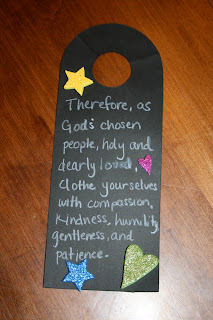 Therefore, as
God's chosen
people, holy and
dearly loved,
clothe yourselves
with compassion,
kindness, humility,
gentleness, and
patience.